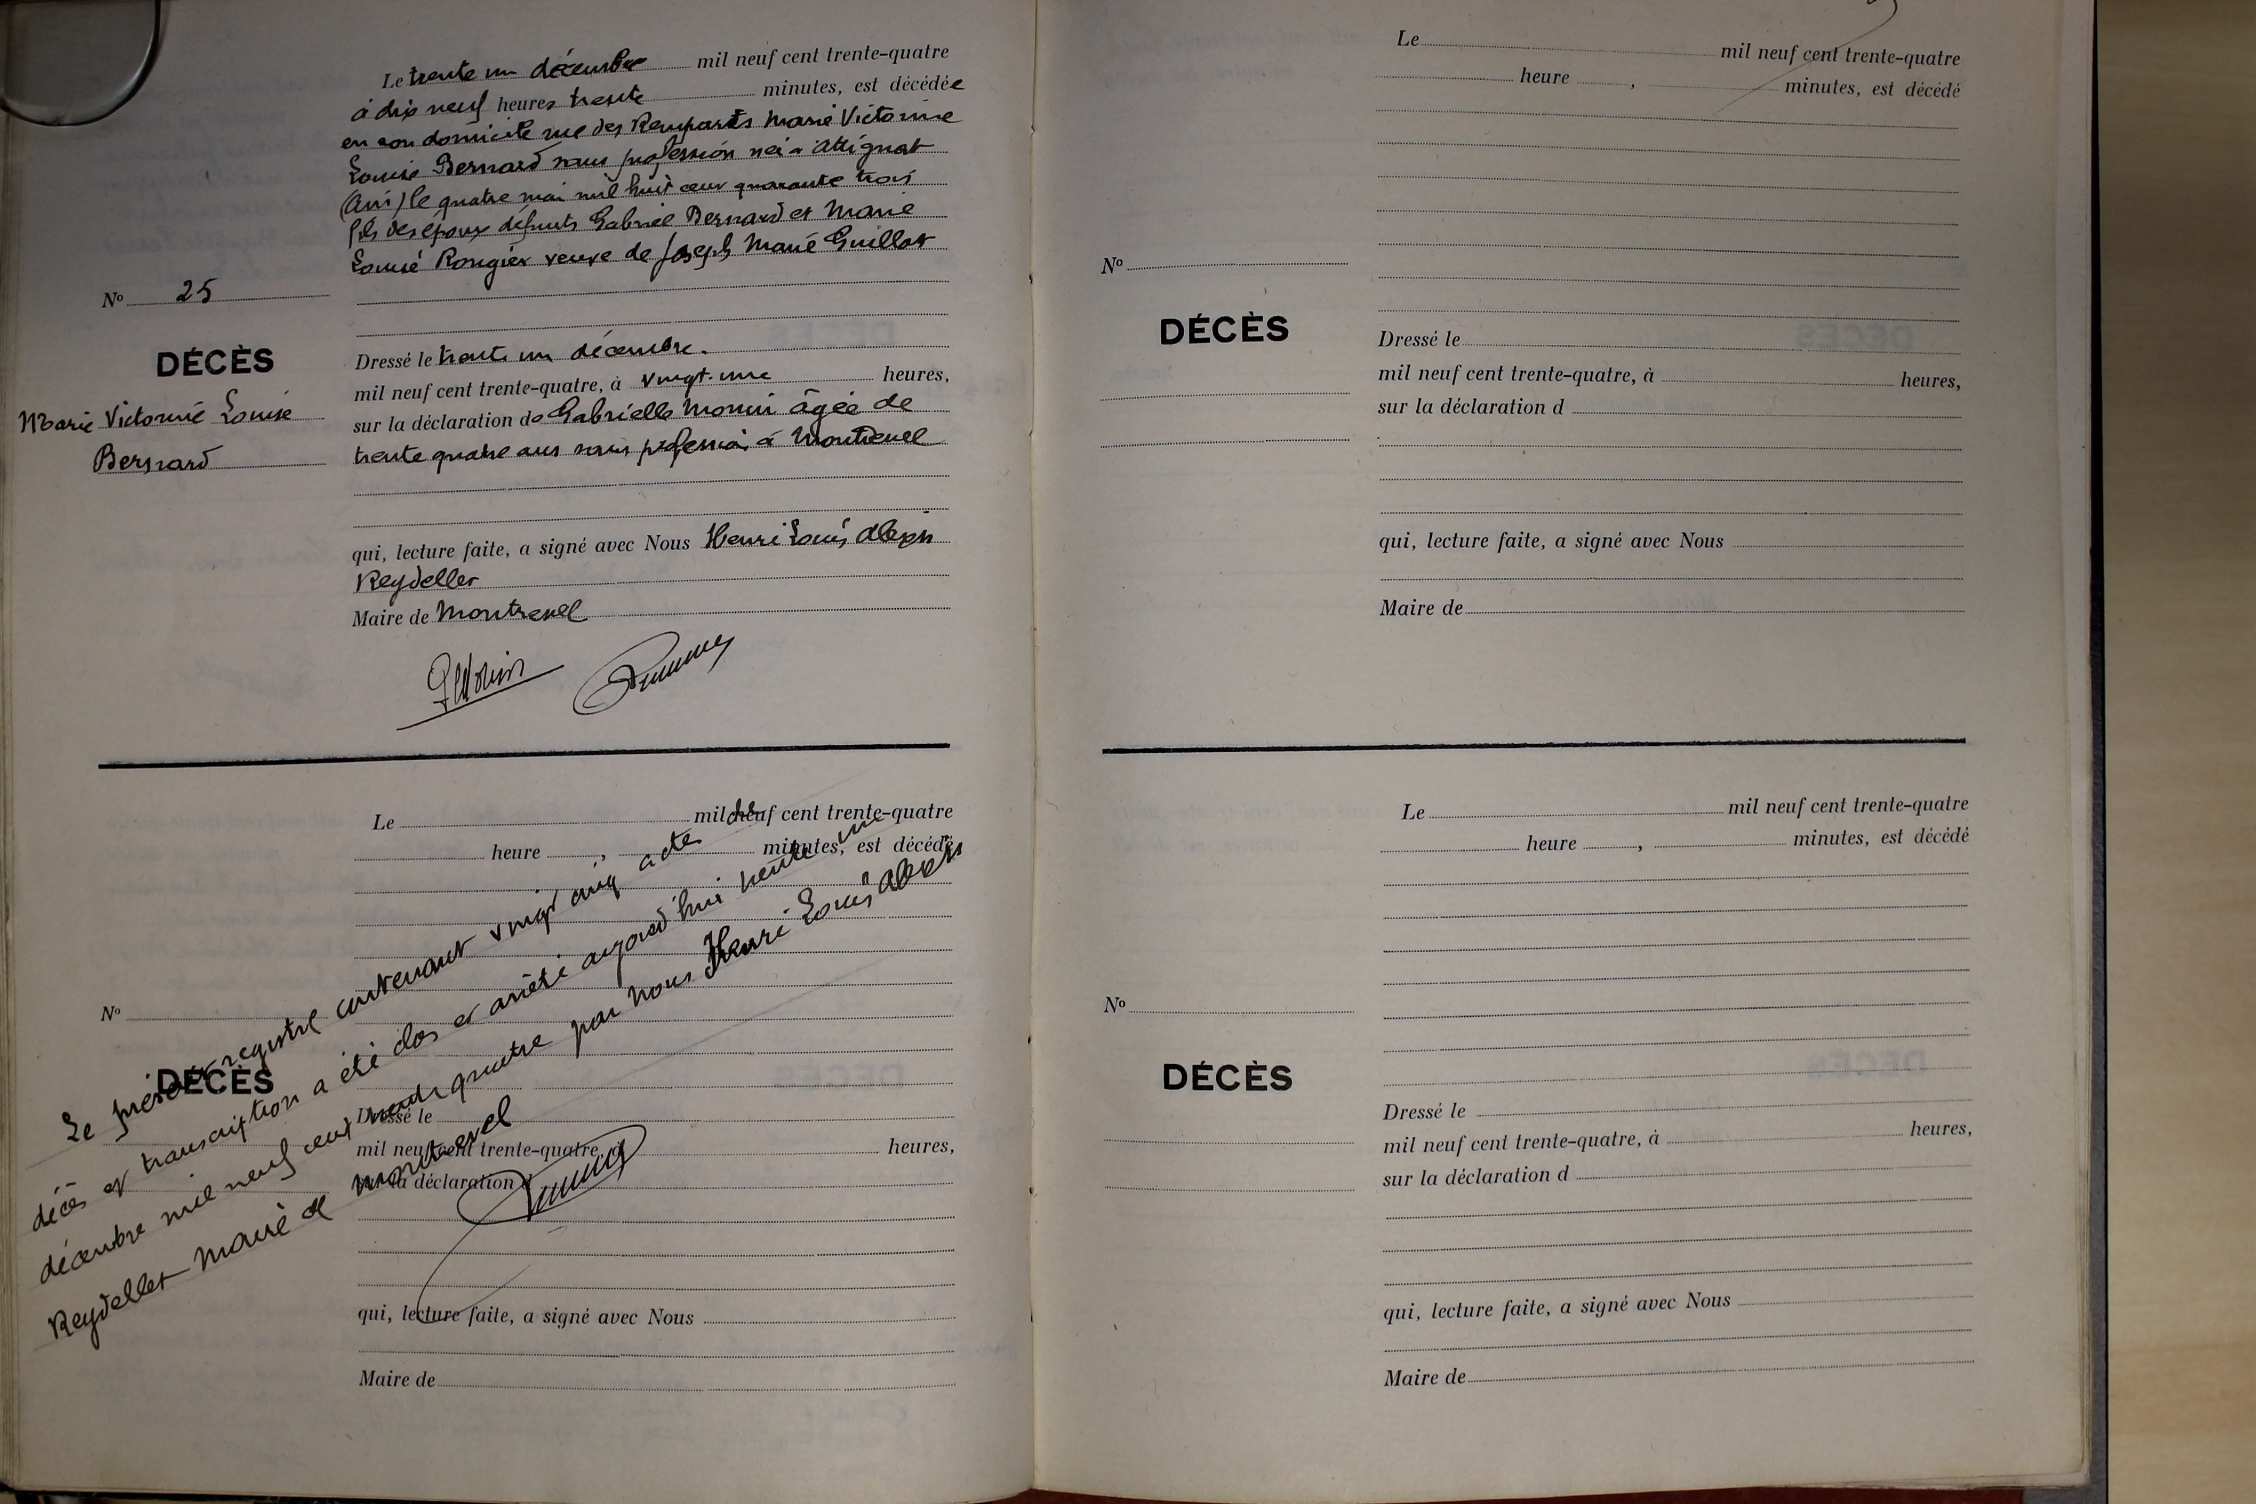 Le trente un décembre mil neuf cent trente-quatre
à dix neuf heures trente minutes, est décédée
en son domicile rue des Remparts Marie Victorine
Louise Bernard sans profession née à Attignat
(Ain) le quatre mai mil huit cent quarante trois
fils des époux défunts Gabriel Bernard et Marie
Louise Rongier veuve de Joseph Marie Guillot
No 25
DÉCÈS
Marie Victorine Louise
Bernard
Dressé le trente un décembre.
mil neuf cent trente-quatre, à vingt-une heures,
sur la déclaration de Gabrielle Morin âgée de
trente quatre ans sans profession à Montrevel
qui, lecture faite, a signé avec Nous Henri Louis Alexis
Reydellet
Maire de Montrevel
GMorin
Le mil neuf cent trente-quatre
heure , minutes, est décédé
No
DÉCÈS
Dressé le
mil neuf cent trente-quatre, à heures,
sur la déclaration d
qui, lecture faite, a signé avec Nous
Maire de
Le présent registre contenant vingt cinq actes de
décès et transcription a été clos et arrêté aujourd'hui trente un
décembre mil neuf cent trente quatre par nous Henri Louis Alexis
Reydellet Maire de Montrevel
Le mil neuf cent trente-quatre
heure , minutes, est décédé
No
DÉCÈS
Dressé le
mil neuf cent trente-quatre, à heures,
sur la déclaration d
qui, lecture faite, a signé avec Nous
Maire de
Le mil neuf cent trente-quatre
heure , minutes, est décédé
No
DÉCÈS
Dressé le
mil neuf cent trente-quatre, à heures,
sur la déclaration d
qui, lecture faite, a signé avec Nous
Maire de